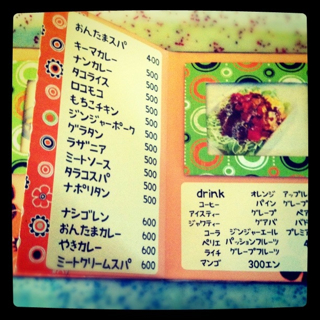 おんたまスパ 400
キーマカレー 500
ナンカレー 500
タコライス 500
ロコモコ 500
もちこチキン 500
ジンジャーポーク 500
グラタン 500
ラザニア 500
ミートソース 500
タラコスパ 500
ナポリタン 500
ナシゴレン 600
おんたまカレー 600
やきカレー 600
ミートクリームスパ 600
drink オレンジ アップル
コーヒー パイン グレープ
アイスティー グレープ
ジャワティー グアバ
コーラ ジンジャーエール プレミ
ペリエ パッションフルーツ
ライチ グレープフルーツ
マンゴ 300エン